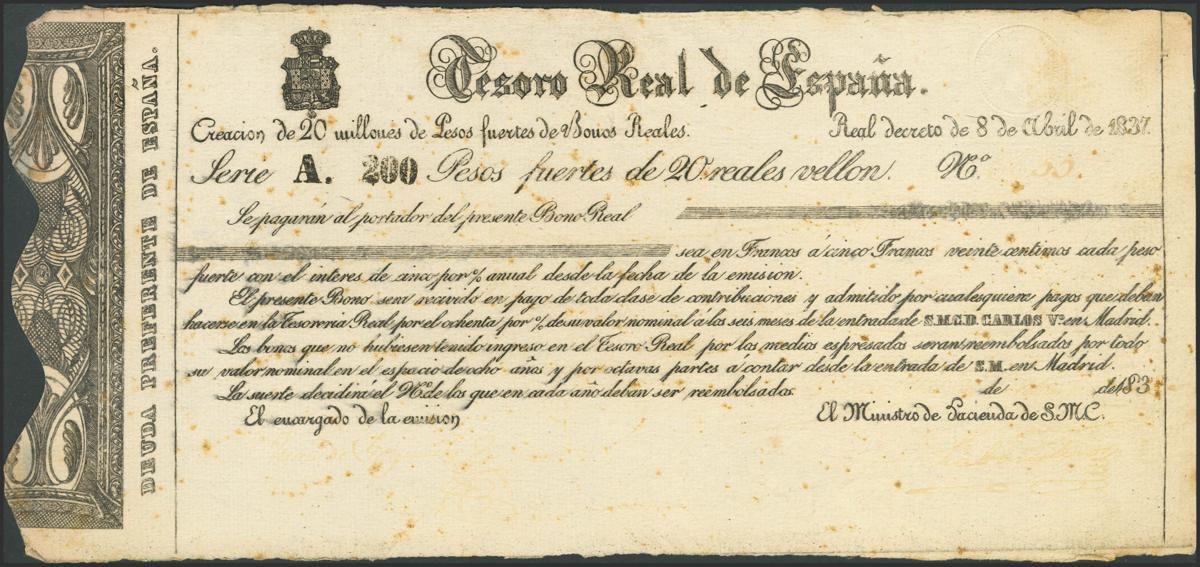 DEUDA PREFERENTE DE ESPAÑA.
Tesoro Real de España.
Creacion de 20 millones de Pesos fuertes de Bonos Reales. Real decreto de 8 de Abril de 1837.
Serie A. 200 Pesos fuertes de 20 reales vellon. Nº
Se pagarán al portador del presente Bono Real
sea en Francos á cinco Francos veinte centimos cada peso
fuerte con el interes de cinco por % anual desde la fecha de la emision.
El presente Bono sera recivido en pago de toda clase de contribuciones y admitido por cualesquiera pagos que deban
hacerse en la Tesoreria Real por el ochenta por % de su valor nominal á los seis meses de la entrada de S.M.C.D. CARLOS Vº. en Madrid.
Los bonos que no hubiesen tenido ingreso en el Tesoro Real por los medios espresados seran reembolsados por todo
su valor nominal en el espacio de ocho años y por octavas partes á contar desde la entrada de S.M. en Madrid.
La suerte decidirá el Nº de los que en cada año deban ser reembolsados. de de 183
El encargado de la emision El Ministro de Hacienda de S.M.C.